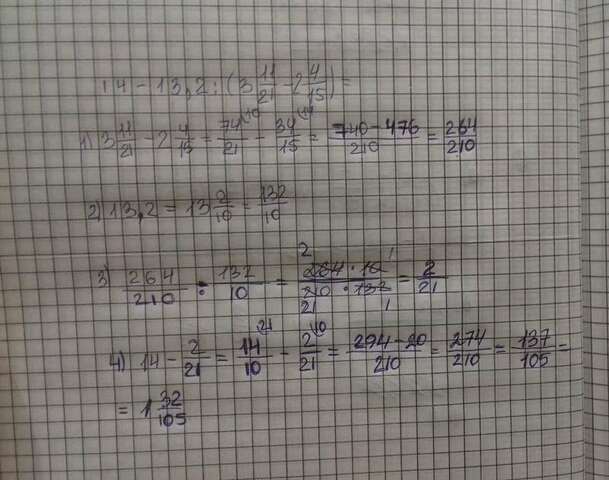 14 - 13,2 : (3 11/21 - 2 4/15) =
1) 3 11/21 - 2 4/15 = 74/21 (10 - 34/15 (14 = 740 - 476/210 = 264/210
2) 13,2 = 13 2/10 = 132/10
3) 264/210 : 132/10 = 2 264 · 10 1/210 · 132 21 1 = 2/21
4) 14 - 2/21 = 14/10 (21 - 2/21 (10 = 294 - 20/210 = 274/210 = 137/105 =
= 1 32/105